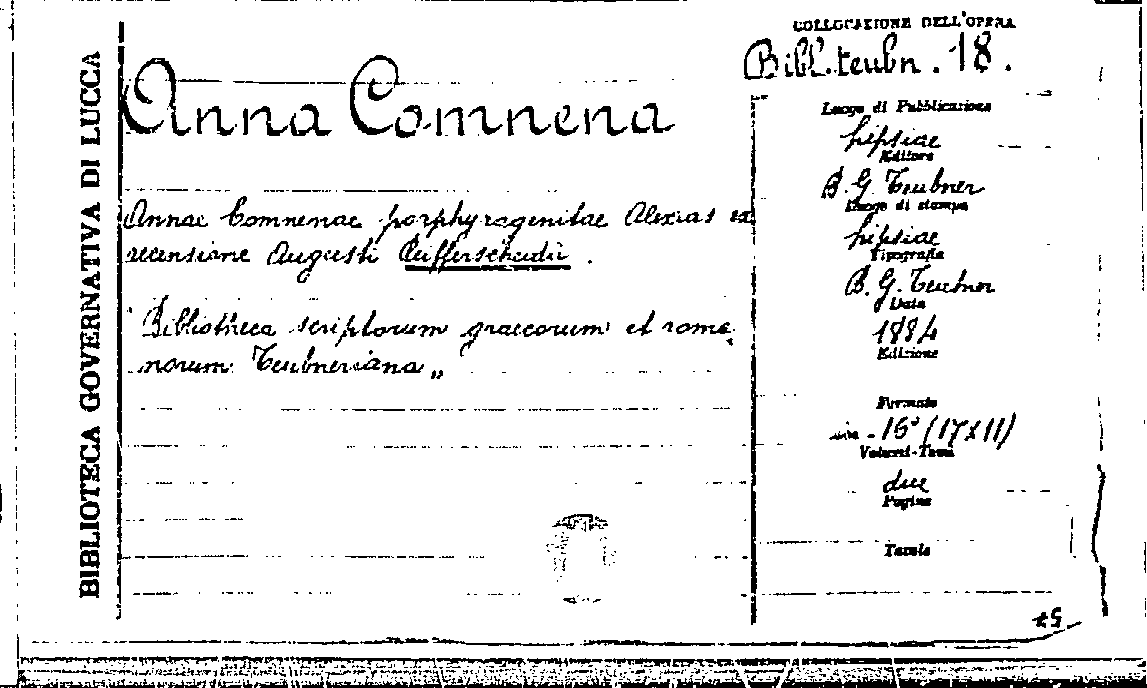 BIBLIOTECA GOVERNATIVA DI LUCCA
Anna Comnena
Annae Comnenae porphyrogenitae Alexias ex
recensione Augusti Reifferscheidii .
"Bibliotheca scriptorum graecorum et roma
norum Teubneriana „
COLLOCAZIONE DELL'OPERA
Bibl. teubn. 18.
Luogo di Pubblicazione
Lipsiae
Editore
B. G. Teubner
Luogo di stampa
Lipsiae
Tipografia
B. G. Teubner
Data
1884
Edizione
Formato
in - 16° (17x11)
Volumi-Tomi
due
Pagine
Tavole